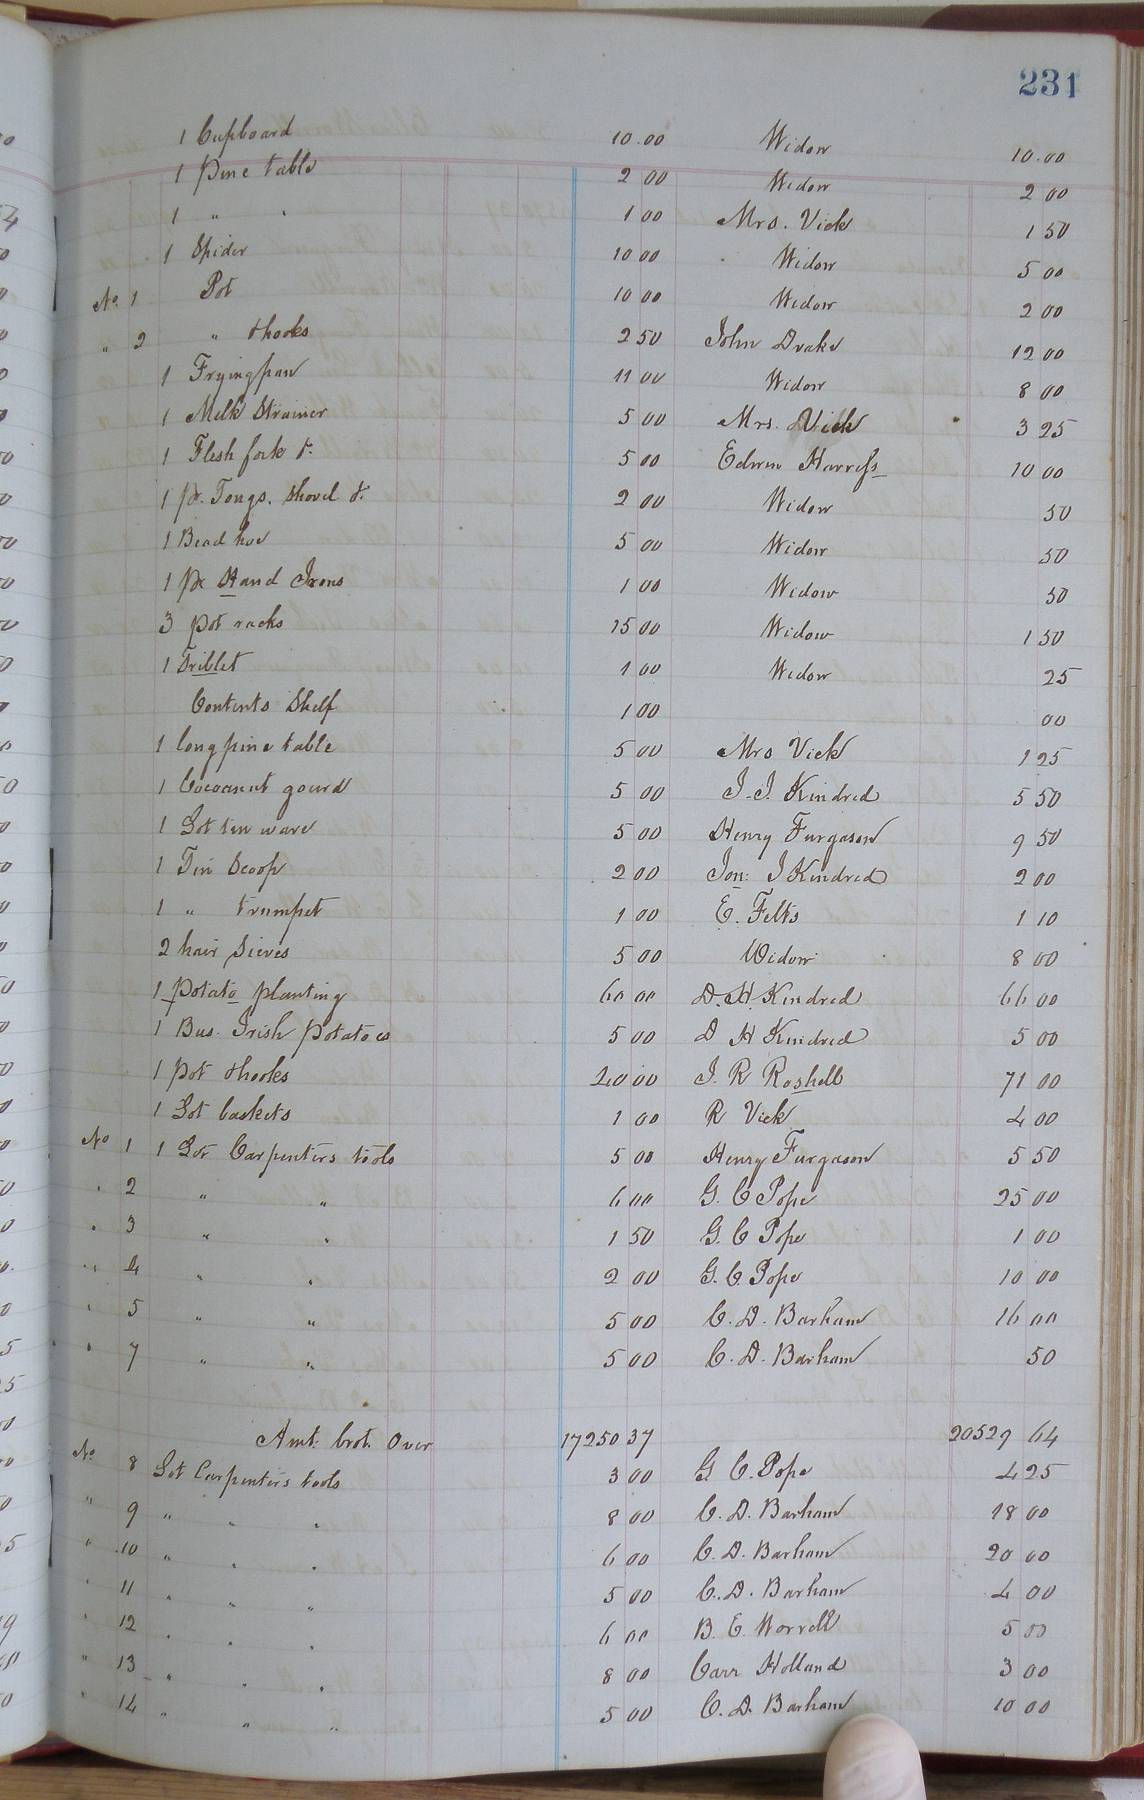 231
1 Cupboard 10.00 Widow 10.00
1 Pine table 2 00 Widow 2 00
1 " " 1 00 Mrs. Vick 1 50
1 Spider 10 00 Widow 5 00
No. 1 Pot 10 00 Widow 2 00
" 2 " & hooks 2 50 John Drake 12 00
1 Fryingpan 11 00 Widow 8 00
1 Milk Strainer 5 00 Mrs. Vick 3 25
1 Flesh fork &. 5 00 Edwin Harriss 10 00
1 pr. Tongs, Shovel &. 2 00 Widow 50
1 Bread hoe 5 00 Widow 50
1 pr Hand Irons 1 00 Widow 50
3 pot racks 15 00 Widow 1 50
1 Triblet 1 00 Widow 25
Contents Shelf 1 00 00
1 long pine table 5 00 Mrs Vick 1 25
1 Cocoanut gourd 5 00 J. J. Kindred 5 50
1 Lot tin ware 5 00 Henry Furgason 9 50
1 Tin Scoop 2 00 Jon: J Kindred 2 00
1 " trumpet 1 00 E. Felts 1 10
2 hair Sieves 5 00 Widow 8 00
1 Potato planting 60 00 D. H. Kindred 66 00
1 Bus. Irish Potatoes 5 00 D H Kindred 5 00
1 Pot & hooks 20 00 J. R Roshell 71 00
1 Lot baskets 1 00 R Vick 4 00
No 1 1 Lot Carpenters tools 5 00 Henry Furgason 5 50
" 2 " " 6 00 G. C Pope 25 00
" 3 " " 1 50 G. C Pope 1 00
" 4 " " 2 00 G. C. Pope 10 00
" 5 " " 5 00 C. D. Barham 16 00
" 7 " " 5 00 C. D. Barham 50
Amt: brot. Over 17250 37 20529 64
No. 8 Lot Carpenters tools 3 00 G C. Pope 4 25
" 9 " " " 8 00 C. D. Barham 18 00
" 10 " " " 6 00 C. D. Barham 20 00
" 11 " " " 5 00 C. D. Barham 4 00
" 12 " " " 6 00 B. E. Worrell 5 00
" 13 " " " 8 00 Carr Holland 3 00
" 14 " " " 5 00 C. D. Barham 10 00